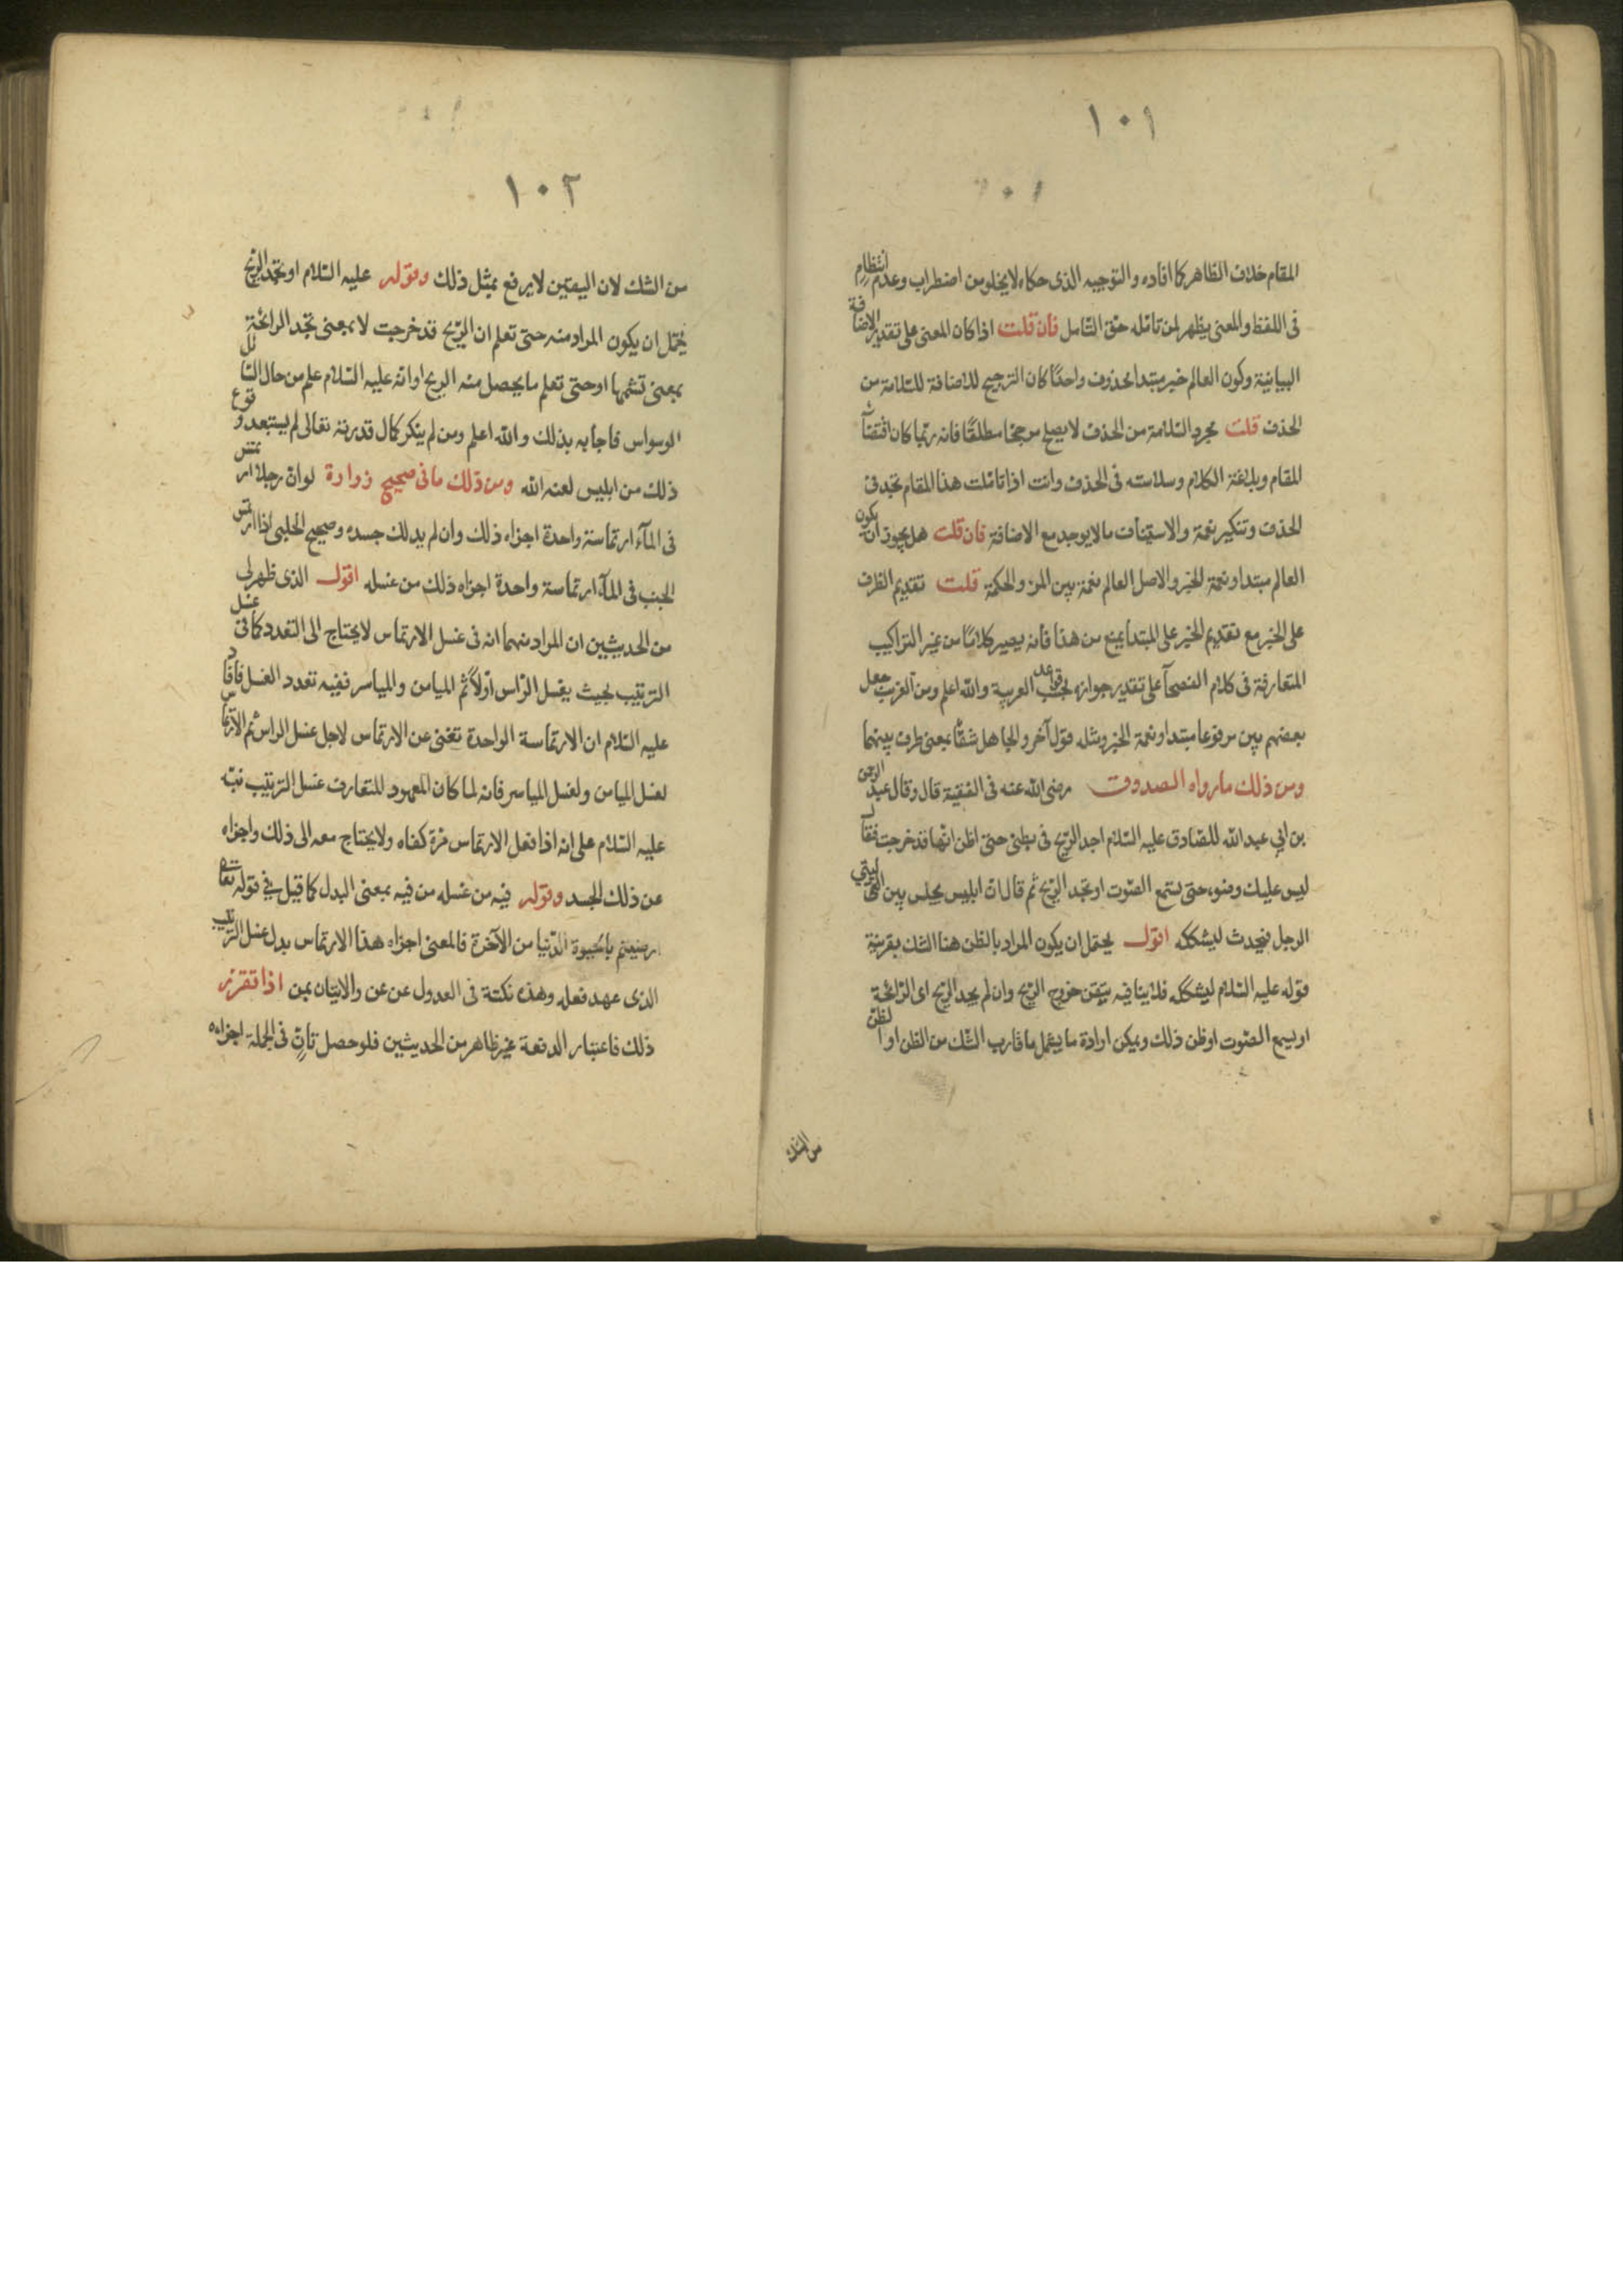 ١٠١
المقام خلاف الظاهر كما افاده والتوجيه الذى حكاه لا يخلو من اضطراب وعدم انتظام
فى اللفظ والمعنى يظهر لمن تامّله حق التامل فان قلت اذا كان المعنى على تقدير الاضافة
البيانية وكون العالم خبر مبتدا محذوف واحدًا كان الترجيح للاضافة للسلامة من
الحذف قلت مجرد السّلامة من الحذف لا يصلح مرجحًا مطلقًا فانه ربّما كان اقتضآء
المقام وبلاغة الكلام وسلاسته فى الحذف وانت اذا تاملت هذا المقام تجد فى
الحذف وتنكير نعمة والاستيناف ما لا يوجد مع الاضافة فان قلت هل يجوز ان يكون
العالم مبتدا ونعمة الخبر والاصل العالم نعمة بين المرء والحكمة قلت تقديم الظرف
على الخبر مع تقديم الخبر على المبتدا يمنع من هذا فانه يصير كلامًا من غير التراكيب
المتعارفة فى كلام الفصحآ على تقدير جوازه بحسب قواعد العربية والله اعلم ومن الغريب جعل
بعضهم بين مرفوعا مبتدا ونعمة الخبر ومثله قول آخر والجاهل شقًّا بمعنى طرف بينهما
ومن ذلك ما رواه الصدوق رضى الله عنه فى الفقيه قال وقال عبد الرحمن
بن ابي عبد الله للصّادق عليه السّلام اجد الرّيح فى بطنى حتى اظن انّها قد خرجت فقال
ليس عليك وضوء حتى تسمع الصّوت او تجد الرّيح ثم قال انّ ابليس يجلس بين اليتي
الرجل فيحدث ليشككه اقول يحتمل ان يكون المراد بالظن هنا الشك بقرينة
قوله عليه السّلام ليشككه فلا ينافيه تيقن خروج الرّيح وان لم يجد الرّيح اى الرّائحة
او يسمع الصّوت او ظن ذلك ويمكن ارادة ما يشمل ما قارب الشّك من الظن او الظن
من الشك
١٠٢
من الشك لان اليقين لا يرفع بمثل ذلك وقوله عليه السّلام او تجد الريح
يحتمل ان يكون المراد منه حتى تعلم ان الرّيح قد خرجت لا بمعنى تجد الرائحة
بمعنى تشمها او حتى تعلم ما يحصل منه الريح او انه عليه السّلام علم من حال السّائل
الوسواس فاجابه بذلك والله اعلم ومن لم ينكر كمال قدرته تعالى لم يستبعد وقوع
ذلك من ابليس لعنه الله ومن ذلك ما فى صحيح زرارة لو انّ رجلا ارتمس
فى المآء ارتماسة واحدة اجزاه ذلك وان لم يدلك جسده وصحيح الحلبى اذا ارتمس
الجنب فى المآء ارتماسة واحدة اجزاه ذلك من غسله اقول الذى ظهر لى
من الحديثين ان المراد منهما انه فى غسل الارتماس لا يحتاج الى التعدد كما فى غسل
الترتيب بحيث يغسل الرّاس اوّلاً ثم الميامن والمياسر ففيه تعدد الغسل فافاد
عليه السّلام ان الارتماسة الواحدة تغنى عن الارتماس لاجل غسل الراس ثم الارتماس
لغسل الميامن ولغسل المياسر فانه لما كان المعهود المتعارف غسل الترتيب نبّه
عليه السّلام على انه اذا فعل الارتماس مرّة كفاه ولا يحتاج معه الى ذلك واجزاه
عن ذلك الجسد وقوله فيه من غسله من فيه بمعنى البدل كما قيل في قوله تعالى
ارضيتم بالحيوة الدّنيا من الآخرة فالمعنى اجزاه هذا الارتماس بدل غسل الترتيب
الذى عهد فعله وهذه نكتة فى العدول عن عن والاتيان بمن اذا تقرّر
ذلك فاعتبار الدفعة غير ظاهر من الحديثين فلو حصل تانٍّ فى الجملة اجزاه